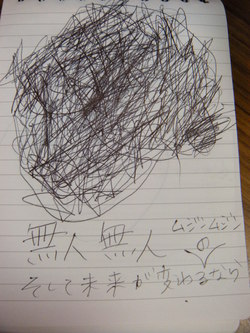 無人 無人
ムジンムジン
の
そして未来が変わるなら